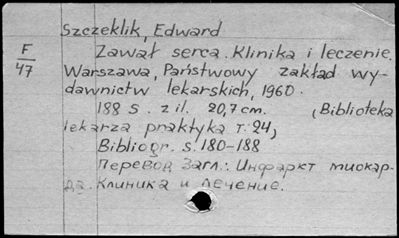 Szczeklik, Edward
F
47
Zawał serca. Klinika i leczenie.
Warszawa, Państwowy zakład wy-
dawnictw lekarskich, 1960.
188 s. z il. 20,7 cm. (Biblioteka
lekarza praktyka т. 24)
Bibliogr. s. 180-188
Перевод Загл.: Инфаркт миокар-
да. Клиника и лечение.